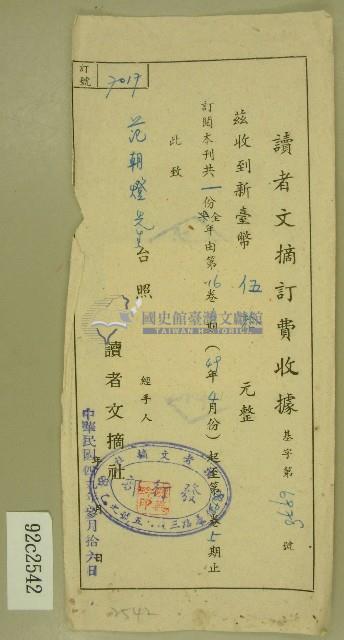 讀者文摘訂費收據
基字第 號
茲收到新臺幣 伍 元整
訂閱本刊共一份全年由第16卷 期(49年4月份)起至第 卷5期止
此致
范朝燈先生台照
經手人
讀者文摘社
年 月 日
中華民國四九年參月拾六日
訂號
7019
國史館臺灣文獻館
TAIWAN HISTORICA
發行部
92c2542
2542